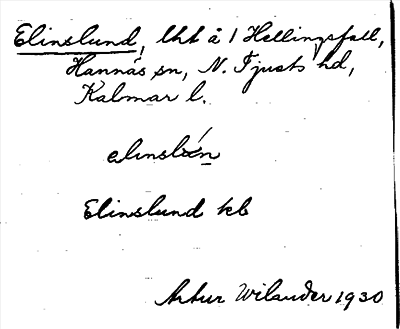 Elinslund, lht å 1 Hellingsfall,
Hannäs sn, N. Tjusts hd,
Kalmar l.
Elinslund kb
Artur Wilander 1930